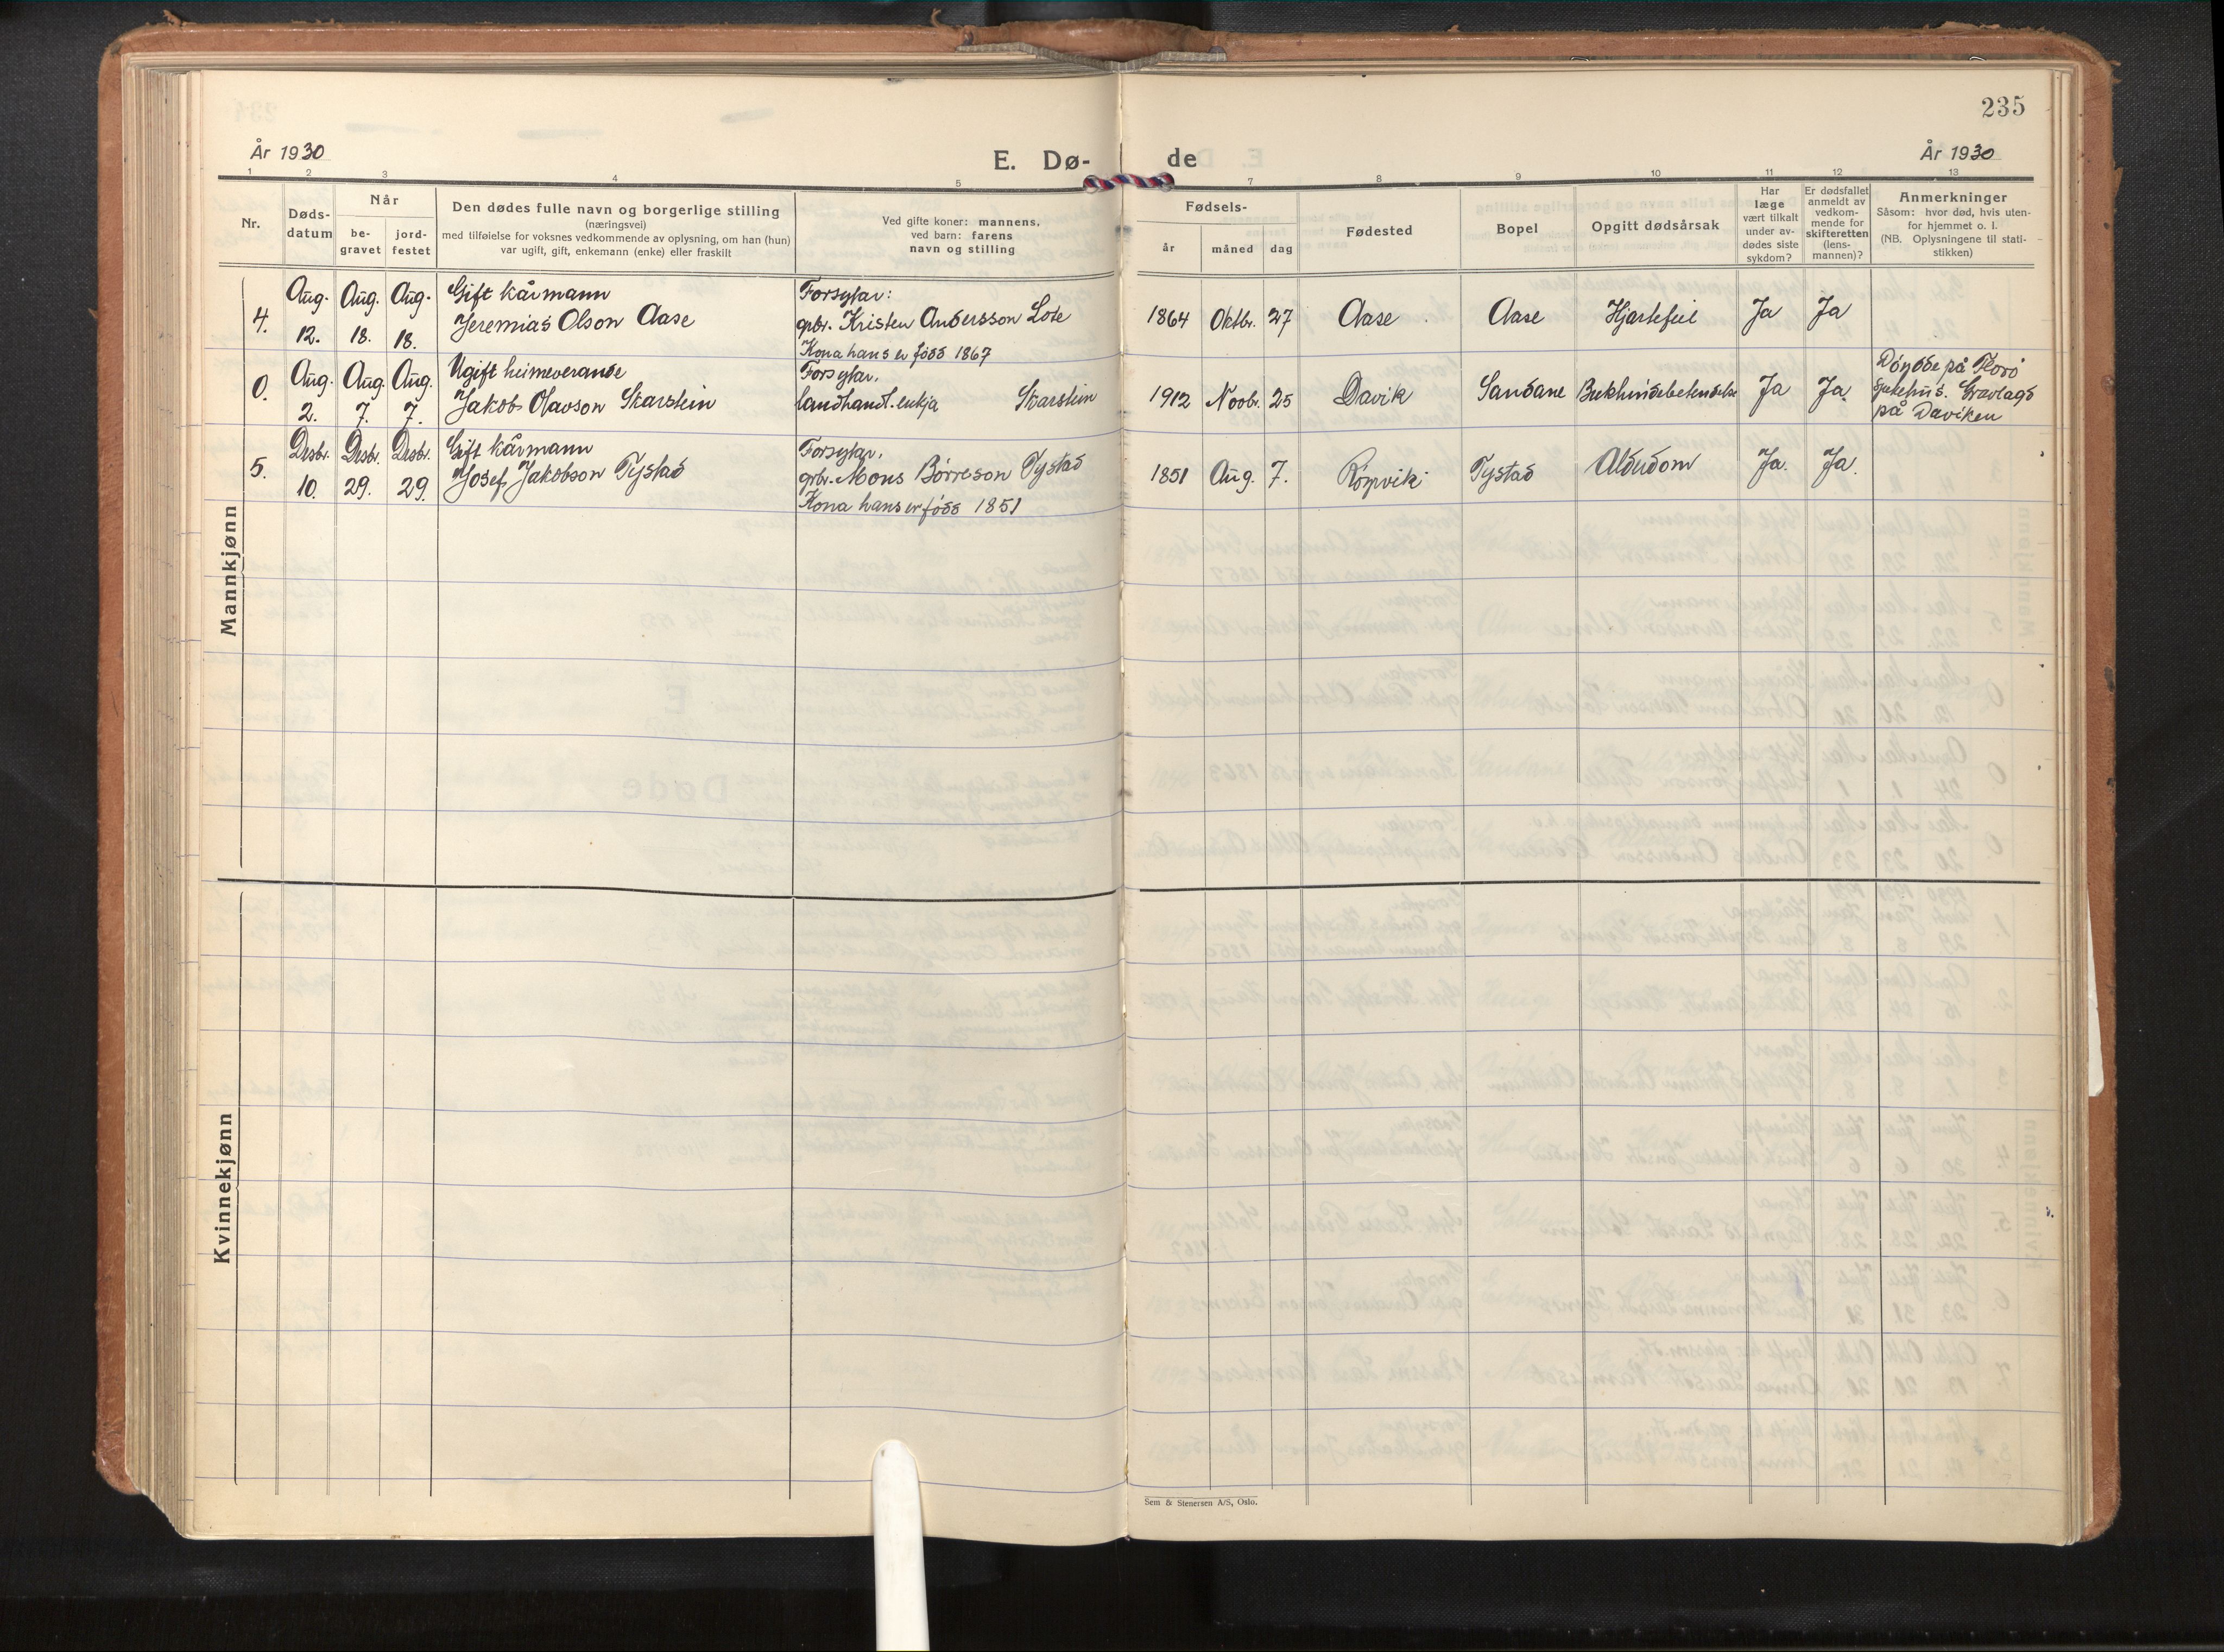 235
År 1930
E. Dø-
de
År 1930
1 2 3 4 5 7 8 9 10 11 12 13
Nr.
Døds-
datum
Når
be-
gravet
jord-
festet
Den dødes fulle navn og borgerlige stilling
(næringsvei)
med tilføielse for voksnes vedkommende av oplysning, om han (hun)
var ugift, gift, enkemann (enke) eller fraskilt
Ved gifte koner: mannens,
ved barn: farens
navn og stilling
Fødsels-
år
måned
dag
Fødested
Bopel
Opgitt dødsårsak
Har
læge
vært tilkalt
under av-
dødes siste
sykdom?
Er dødsfallet
anmeldt av
vedkom-
mende for
skifteretten
(lens-
mannen)?
Anmerkninger
Såsom: hvor død, hvis uten-
for hjemmet o. l.
(NB. Oplysningene til stati-
stikken)
Mannkjønn
4.
Aug.
12.
Aug.
18.
Aug.
18.
Gift kårmann
Jeremias Olson Aase
Forsytar:
grbr. Kristen Andersson Lote
Kona hans er fødd 1867
1864 Oktbr. 27 Aase Aase Hjartefeil Ja Ja
0.
Aug.
2.
Aug.
7.
Aug.
7.
Ugift heimeverande
Jakob Olavson Skarstein
Forsytar,
landhandl. enkja Skarstein
1912 Novbr. 25 Davik Sandane Bukhindebetendelse Ja Ja.
Døydde på Florø
sjukehus. Gravlagd
på Daviken
5.
Desbr.
10.
Desbr.
29.
Desbr.
29.
Gift kårmann
Josef Jakobson Tystad
Forsytar,
grbr. Mons Børreson Tystad
Kona hans er fødd 1851
1851 Aug. 7. Tystad Alderdom Ja. Ja.
Kvinnekjønn
Sem & Stenersen A/S, Oslo.